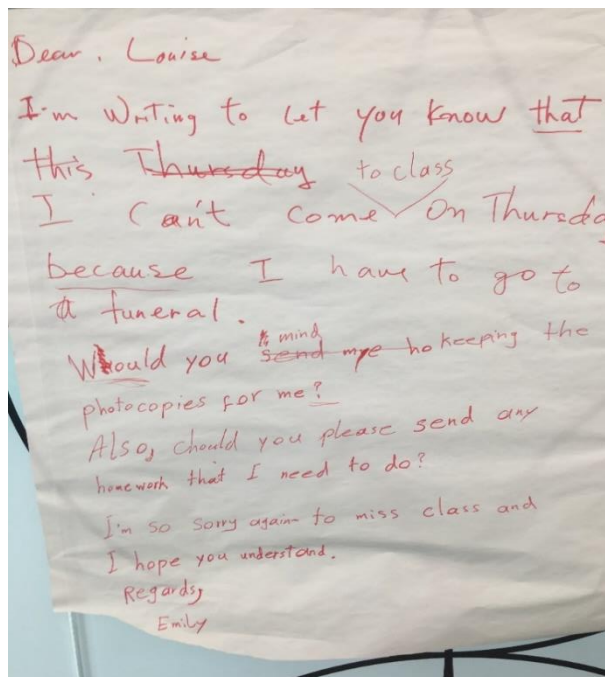 Dear, Louise
I'm Writing to let you know that
this Thursday to class
I can't come On Thursda
because I have to go to
a funeral.
mind
Would you send me keeping the
photocopies for me?
Also, chould you please send any
homework that I need to do?
I'm so sorry again to miss class and
I hope you understand.
Regards,
Emily